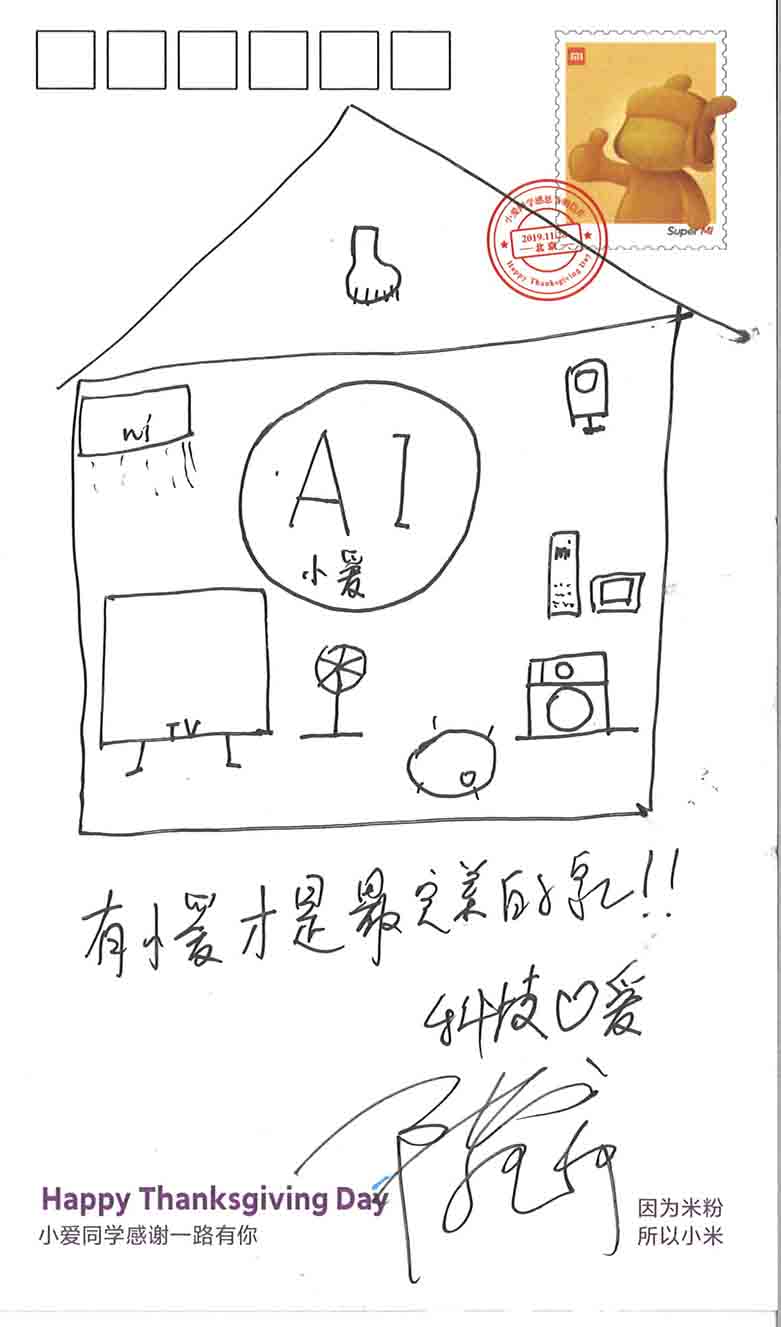 Super Mi
2019.11.28
北京
Happy Thanksgiving Day
mi
AI
小爱
mi
TV
有小爱才是最完美的家!!
科技♡爱
Happy Thanksgiving Day
小爱同学感谢一路有你
因为米粉
所以小米